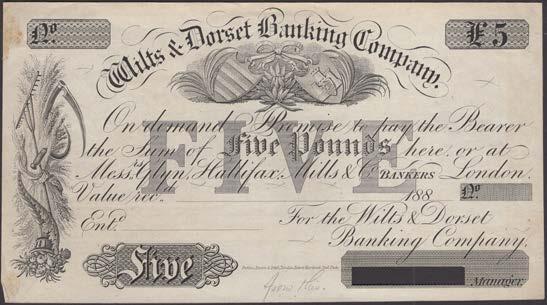 No.
£5
Wilts & Dorset Banking Company.
On demand I Promise to pay the Bearer
the Sum of Five Pounds here, or at
Messrs Glyn, Hallifax, Mills & Co. BANKERS London.
FIVE
Value rec. 188 No.
Entd. For the Wilts & Dorset
Banking Company.
Five
Manager.